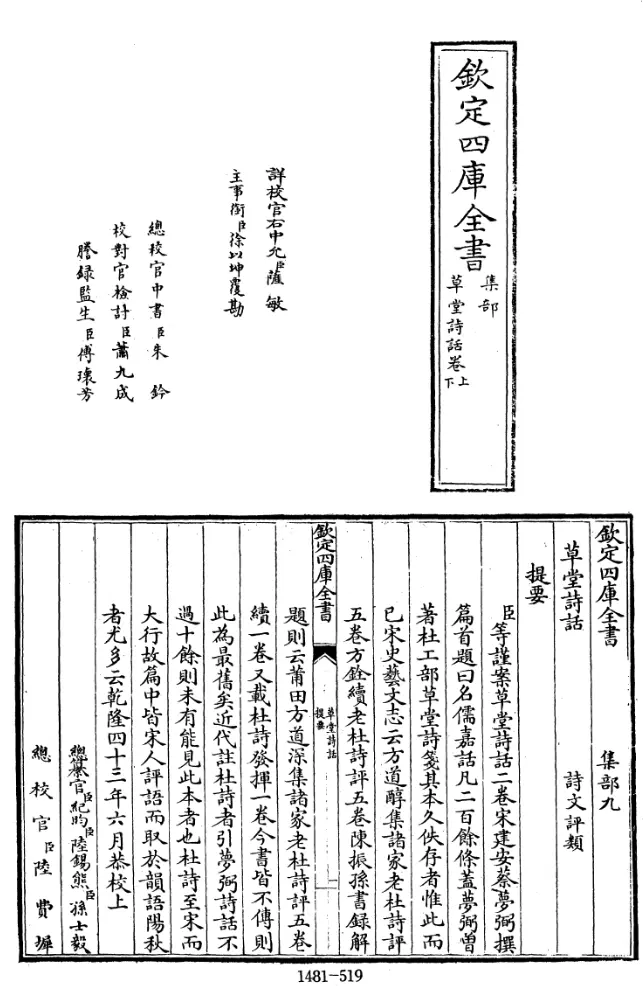 欽定四庫全書
集部
草堂詩話卷上下
詳校官右中允臣薩敏
主事銜臣徐以坤覆勘
總校官中書臣朱鈐
校對官檢討臣蕭九成
謄錄監生臣傅瓌芳
欽定四庫全書 集部九
草堂詩話 詩文評類
提要
臣等謹案草堂詩話二卷宋建安蔡夢弼撰
篇首題曰名儒嘉話凡二百餘條蓋夢弼嘗
著杜工部草堂詩箋其本久佚存者惟此而
已宋史藝文志云方道醇集諸家老杜詩評
五卷方銓續老杜詩評五卷陳振孫書錄解
欽定四庫全書
草堂詩話
提要
一
題則云莆田方道深集諸家老杜詩評五卷
續一卷又載杜詩發揮一卷今書皆不傳則
此為最舊矣近代註杜詩者引夢弼詩話不
過十餘則未有能見此本者也杜詩至宋而
大行故篇中皆宋人評語而取於韻語陽秋
者尤多云乾隆四十三年六月恭校上
總纂官臣紀昀臣陸錫熊臣孫士毅
總校官臣陸費墀
1481-519